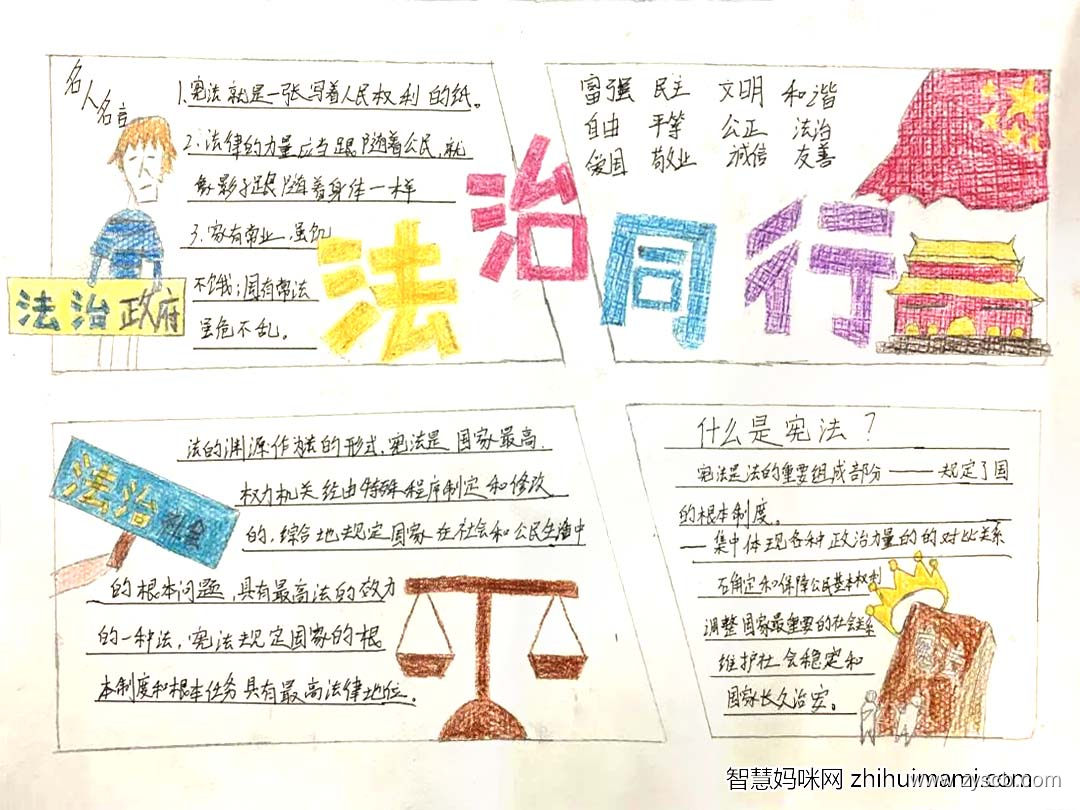 名人名言
1.宪法就是一张写着人民权利的纸。
2.法律的力量应当跟随着公民,就
象影子跟随着身体一样
3.家有常业,虽饥
不饿;国有常法
虽危不乱。
法治政府
法治同行
富强 民主 文明 和谐
自由 平等 公正 法治
爱国 敬业 诚信 友善
法治社会
法的渊源作为法的形式,宪法是国家最高.
权力机关经由特殊程序制定和修改
的,综合地规定国家在社会和公民生活中
的根本问题,具有最高法的效力
的一种法,宪法规定国家的根
本制度和根本任务具有最高法律地位.
什么是宪法?
宪法是法的重要组成部分——规定了国
的根本制度。
—集中体现各种政治力量的的对比关系
确定和保障公民基本权利
调整国家最重要的社会关系
维护社会稳定和
国家长久治安。
宪法
智慧妈咪网 zhihuimami.com